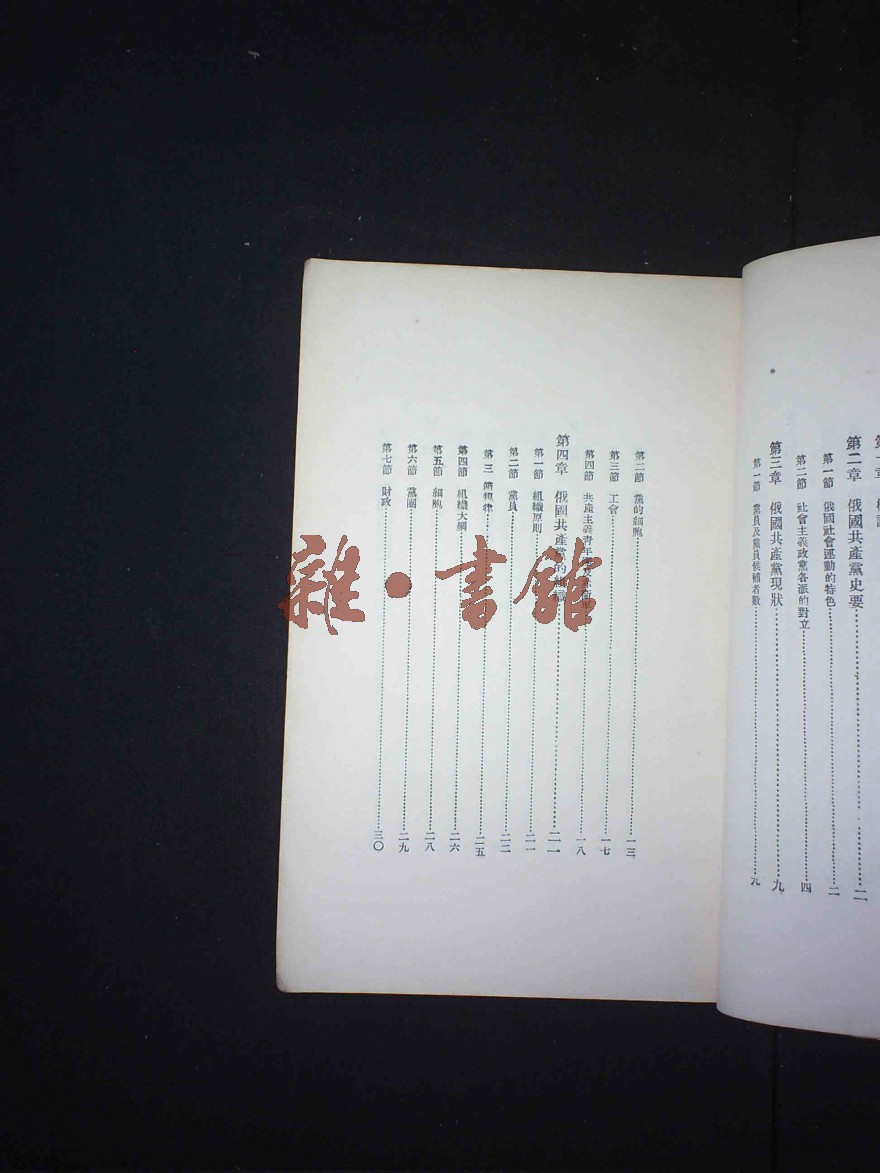 第二章 俄國共產黨史要……二
第一節 俄國社會運動的特色……二
第二節 社會主義政黨各派的對立……四
第三章 俄國共產黨現狀……九
第一節 黨員及黨員候補者數……九
第二節 黨的細胞……一三
第三節 工會……一七
第四節 共產主義青年……一八
第四章 俄國共產黨的組織……二一
第一節 組織原則……二一
第二節 黨員……二二
第三節 規律……二五
第四節 組織大綱……二六
第五節 細胞……二八
第六節 黨團……二九
第七節 財政……三〇
雜·書館